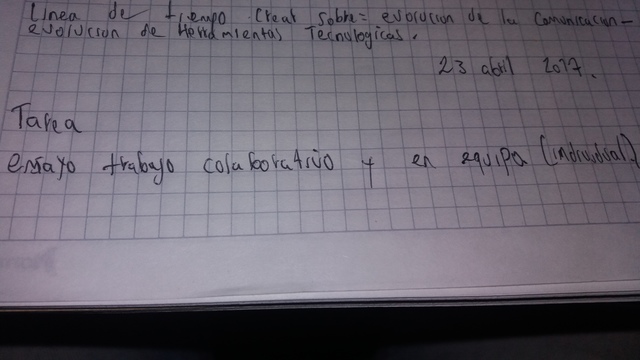 Linea de tiempo Crear sobre: evolucion de la comunicacion-
evolucion de Herramientas Tecnologicas.
23 abril 2017.
Tarea
ensayo trabajo colaborativo y en equipa (individual)